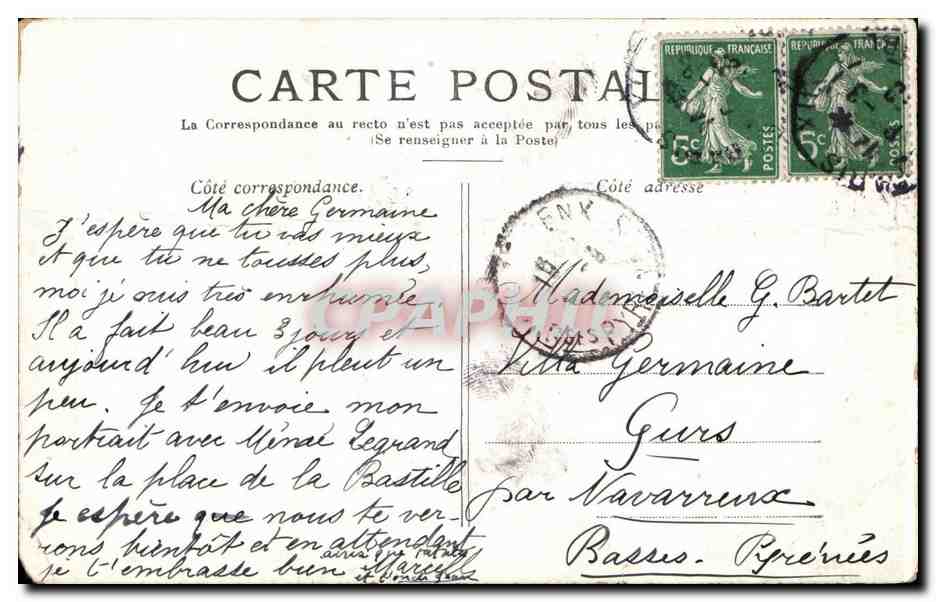 CARTE POSTAL
La Correspondance au recto n'est pas acceptée par tous les pa
(Se renseigner à la Poste)
REPUBLIQUE FRANÇAISE
5c POSTES
REPUBLIQUE FRANÇAISE
5c POSTES
Côté correspondance.
Côté adresse
Ma chère Germaine
J'espère que tu vas mieux
et que tu ne tousses plus,
moi je suis très enrhumée
Il a fait beau 3 jours et
aujourd'hui il pleut un
peu. Je t'envoie mon
portrait avec Legrand
sur la place de la Bastille
Je espère que nous te ver-
rons bientôt et en attendant
je t'embrasse bien Marcelle
ainsi que
Mademoiselle G. Bartet
Villa Germaine
Gurs
par Navarrenx
Basses-Pyrénées
CPAPHIL